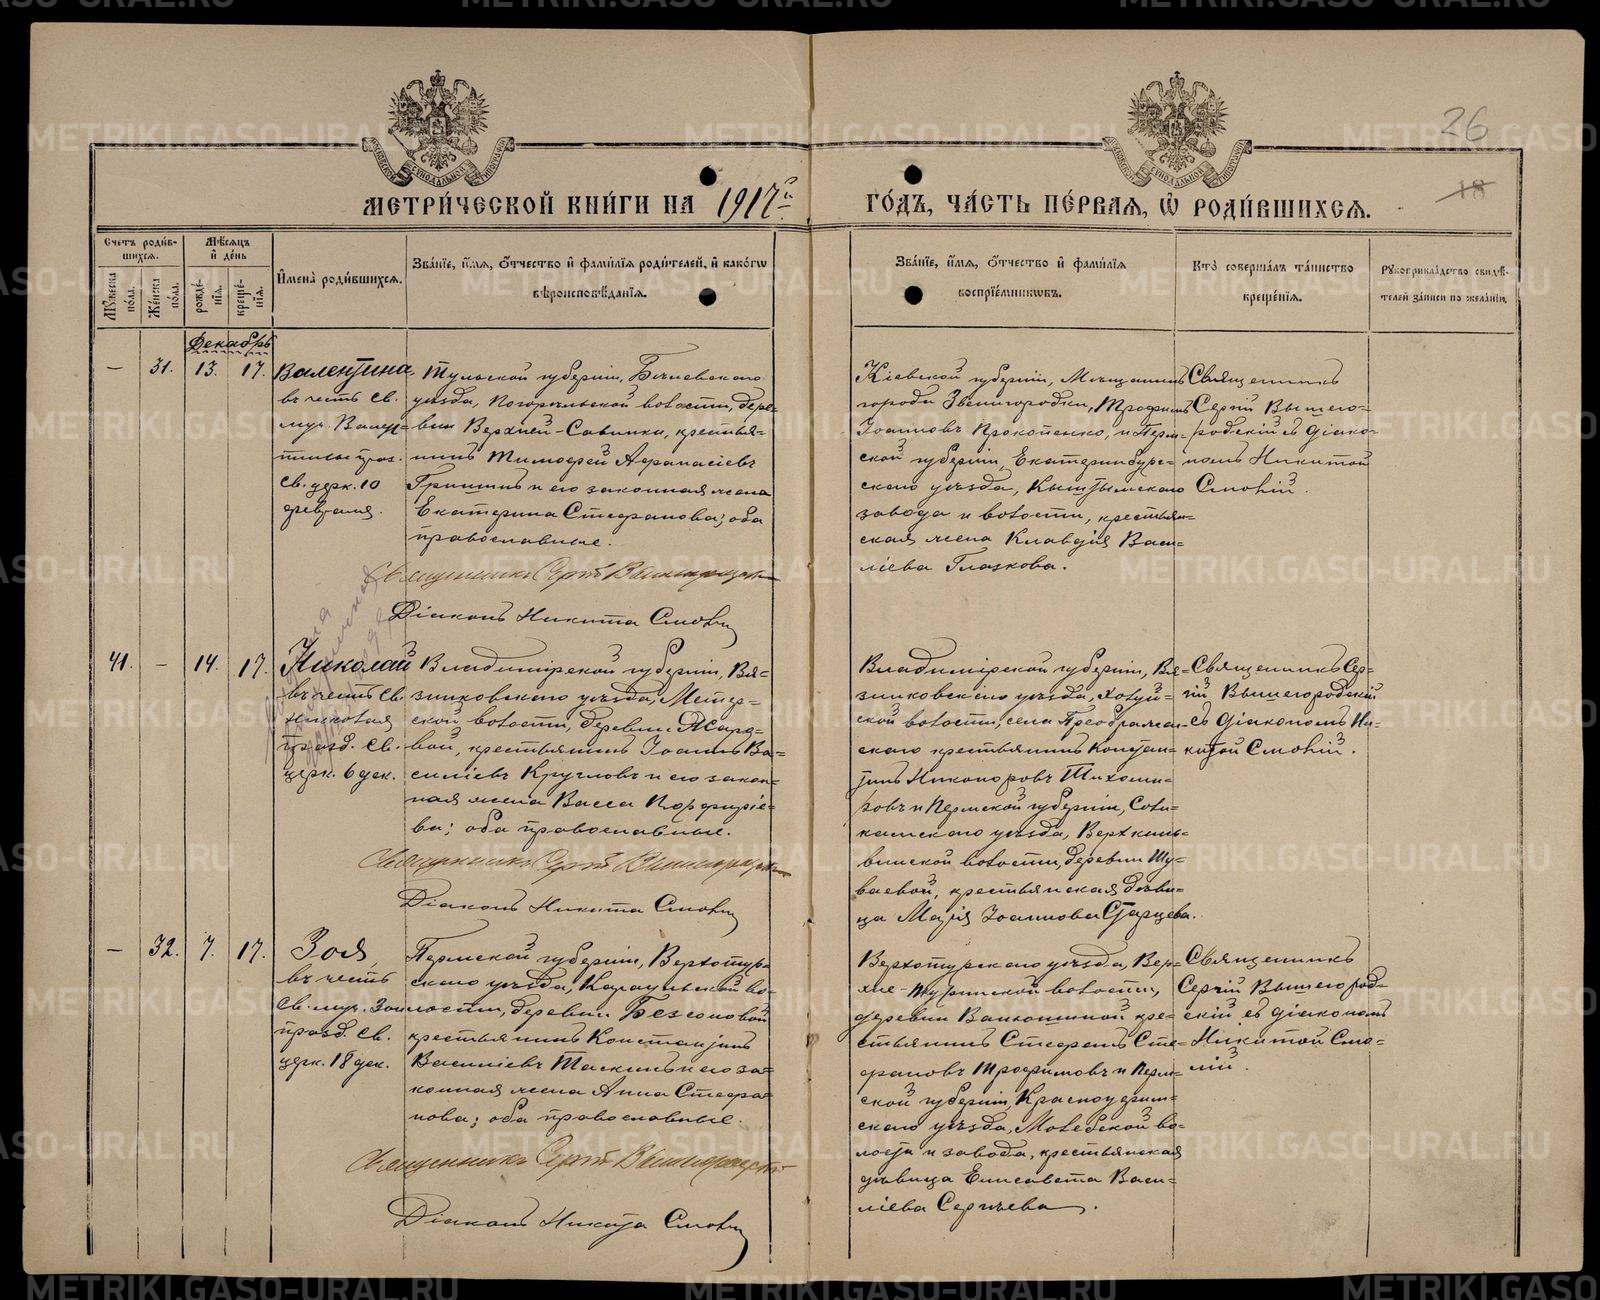 26
18
МЕТРИЧЕСКОЙ КНИГИ НА 1917й ГОДЪ, ЧАСТЬ ПЕРВАЯ, Ѡ РОДИВШИХСЯ.
Счетъ родившихся.
Мужеска пола.
Женска пола.
Мѣсяцъ и день
рожденія.
крещенія.
Имена родившихся.
Званіе, имя, отчество и фамилія родителей, и какогѡ
вѣроисповѣданія.
Званіе, имя, отчество и фамилія
воспріемникѡвъ.
Кто совершалъ таинство
крещенія.
Рукоприкладство свидѣ-
телей записи по желанію.
Декабрь
— 31. 13. 17.
Валентина,
въ честь св.
муч. Вален-
тины праз.
св. церк. 10
февраля.
Тульской губерніи,
уѣзда, волости, дере-
вни Верхней-Савинки, крестья-
нинъ Тимофей Аѳанасіевъ
Гришинъ и его законная жена
Екатерина Стефанова; оба
православные.
Священникъ Сергій Вышегородскій
Діаконъ Никита Смолій
Кіевской губерніи, Мѣщанинъ
города Звенигородки, Трофимъ
Іоанновъ Прокопенко, и Перм-
ской губерніи, Екатеринбург-
скаго уѣзда, Кыштымскаго
завода и волости, крестьян-
ская жена Клавдія Васи-
ліева Глазкова.
Священникъ
Сергій Вышего-
родскій съ діако-
номъ Никитой
Смолій.
41. — 14. 17.
Николай
въ честь св.
Николая
празд. св.
церк. 6 дек.
Владимірской губерніи, Вяз-
никовскаго уѣзда, Мстер-
ской волости, деревни
крестьянинъ Іоаннъ Ва-
силіевъ Кругловъ и его закон-
ная жена Васса Порфиріе-
ва; оба православные.
Священникъ Сергій Вышегородскій
Діаконъ Никита Смолій
Владимірской губерніи, Вяз-
никовскаго уѣзда, Холуй-
ской волости, села Преображен-
скаго крестьянинъ Констан-
тинъ Никаноровъ Тихоми-
ровъ и Пермской губерніи, Соли-
камскаго уѣзда, Верхкиль-
винской волости, деревни Шу-
ваевой, крестьянская дѣви-
ца Марія Іоаннова Старцева.
Священникъ Сер-
гій Вышегородскій
съ діакономъ Ни-
китой Смолій.
— 32. 7. 17.
Зоя,
въ честь
св. муч. Зои
празд. св.
церк. 18 дек.
Пермской губерніи, Верхотур-
скаго уѣзда, Караульской во-
лости, деревни Безсоновой
крестьянинъ Константинъ
Василіевъ Таскинъ и его за-
конная жена Анна Стефа-
нова; оба православные.
Священникъ Сергій Вышегородскій
Діаконъ Никита Смолій
Верхотурскаго уѣзда, Вер-
хне-Туринской волости,
деревни кре-
стьянинъ Стефанъ Сте-
фановъ Трофимовъ и Перм-
ской губерніи, Красноуфим-
скаго уѣзда, Молебской во-
лости и завода, крестьянская
дѣвица Елисавета Васи-
ліева Сергѣева.
Священникъ
Сергій Вышегород-
скій съ діакономъ
Никитой Смо-
лій.
METRIKI.GASO-URAL.RU